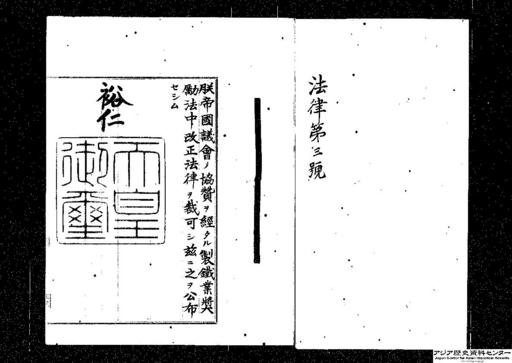 法律第三號
朕帝國議會ノ協贊ヲ經タル製鐵業奬
勵法中改正法律ヲ裁可シ茲ニ之ヲ公布
セシム
裕仁
天皇
御璽
アジア歴史資料センター
Japan Center for Asian Historical Records